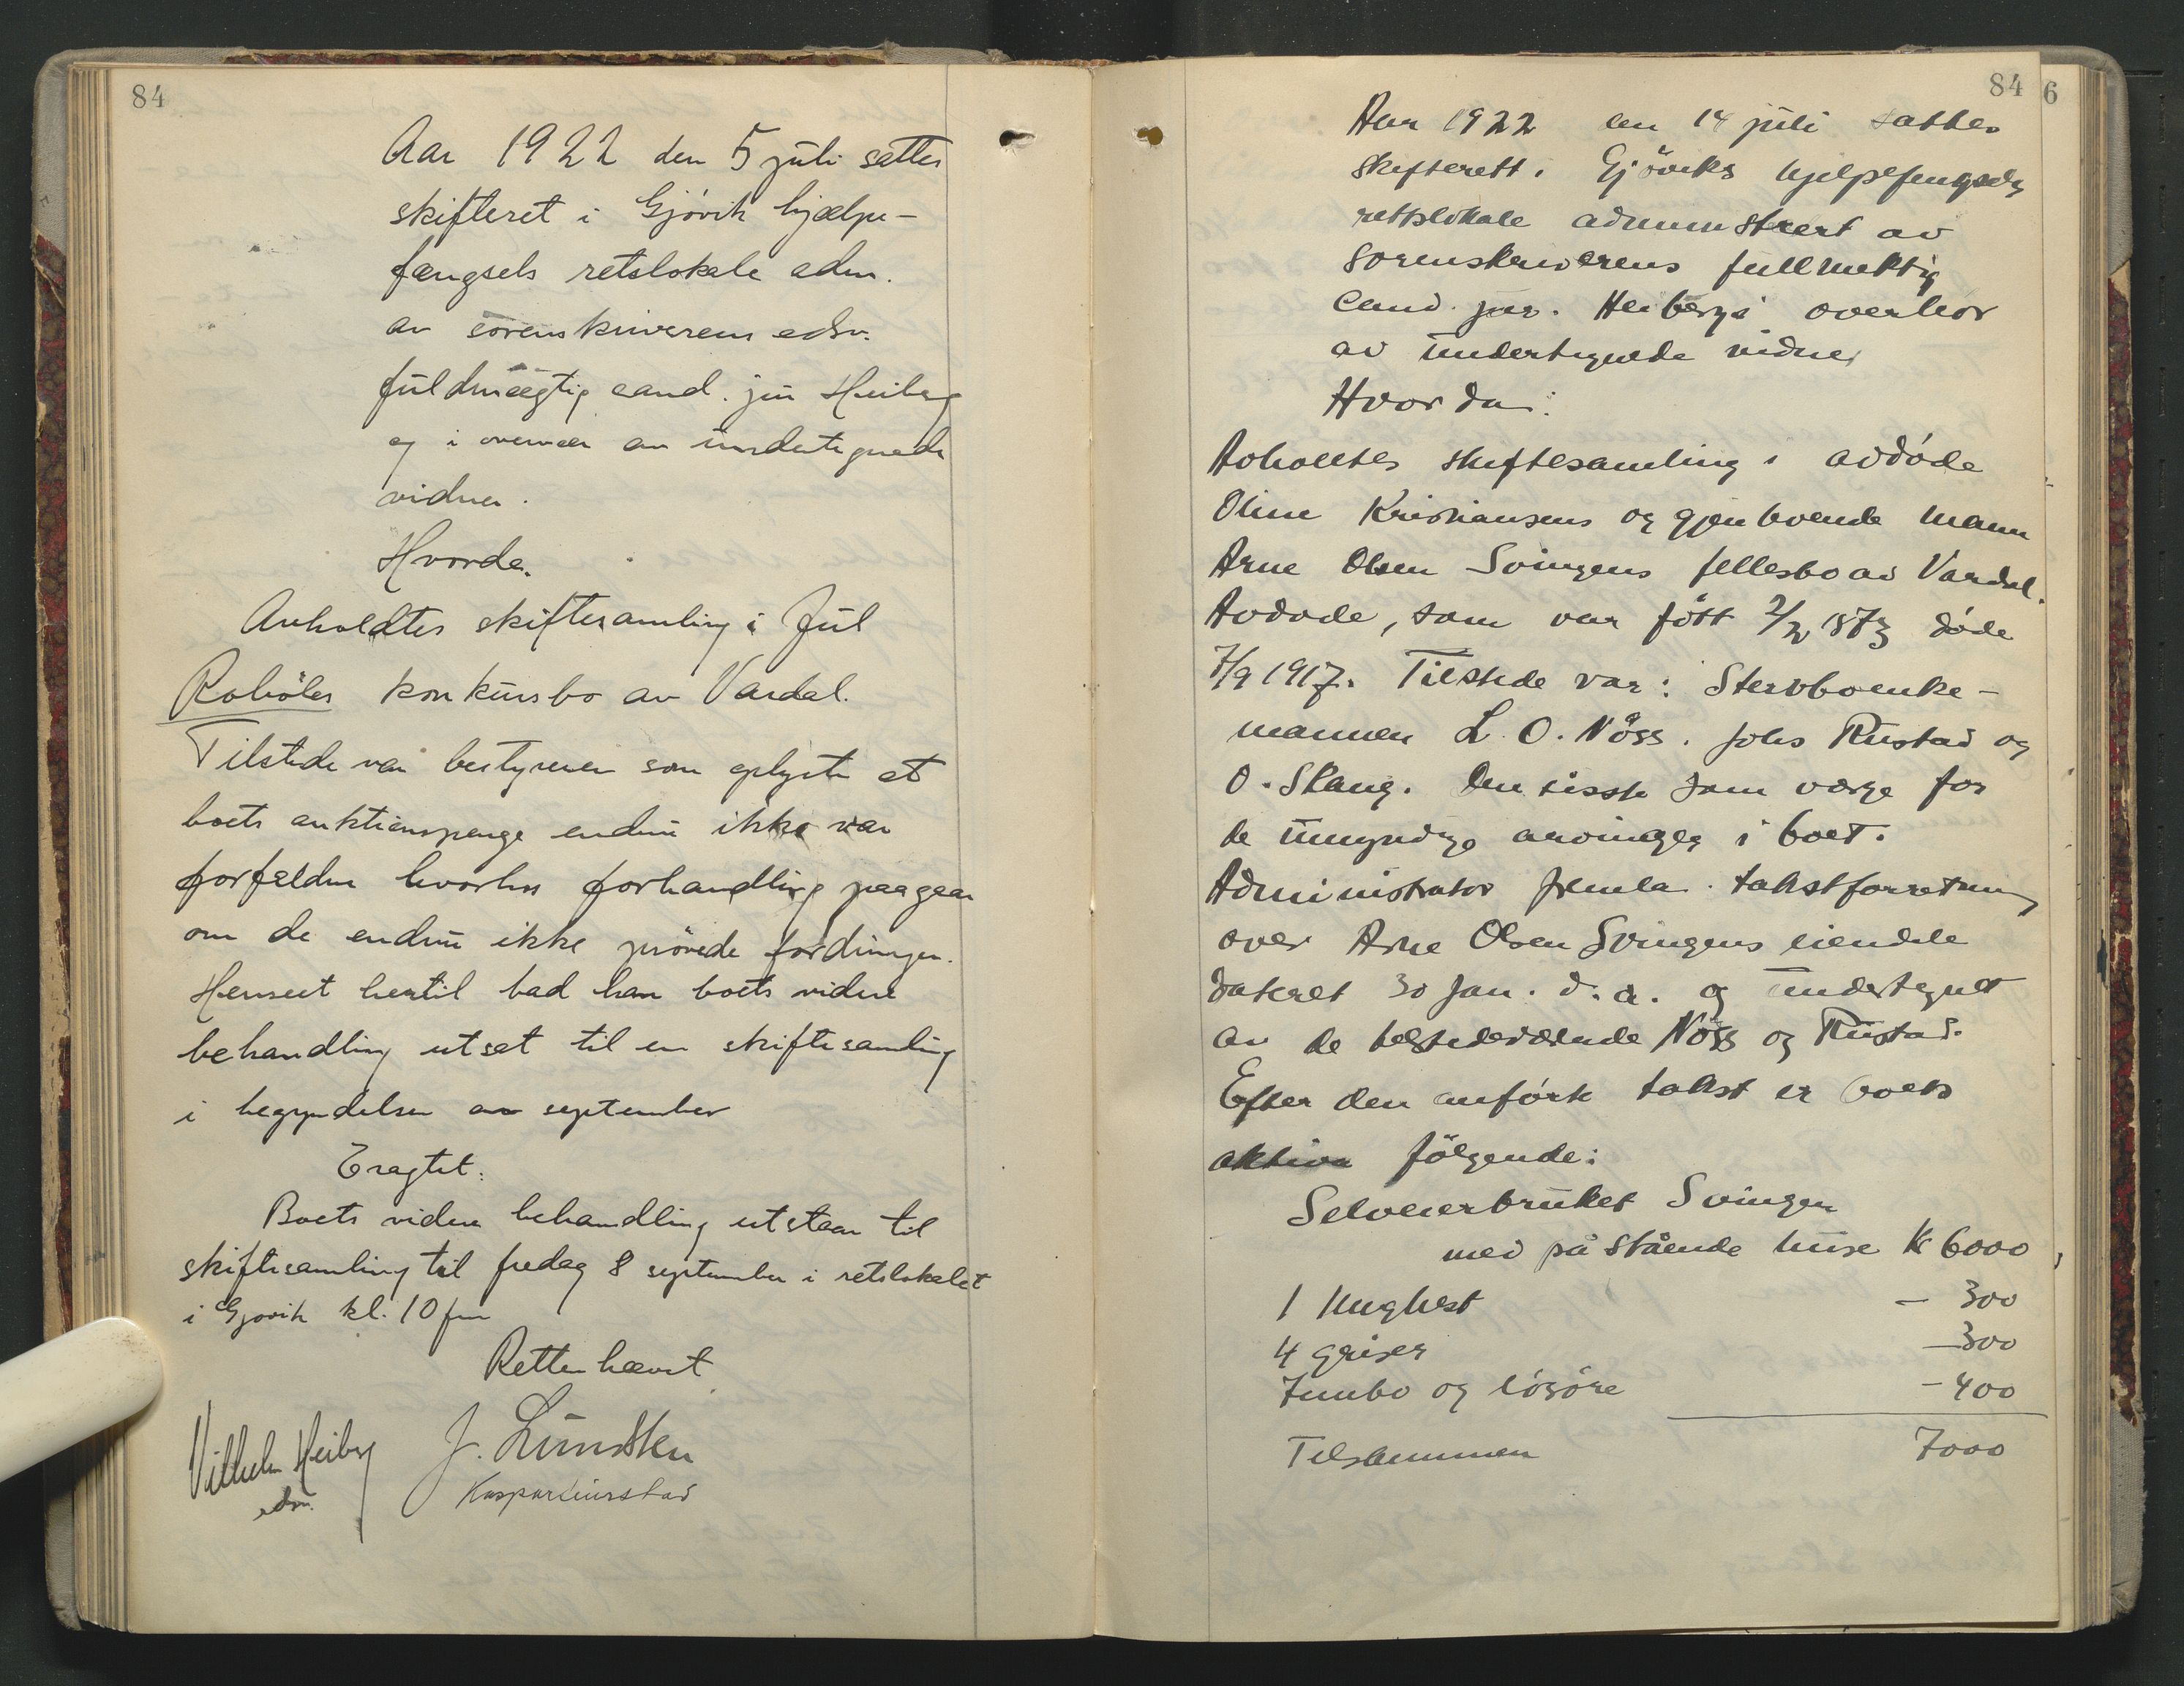 84
Aar 1922 den 5 juli sattes
skifteret i Gjøvik hjælpe-
fængsels retslokale adm.
av sorenskriverens edsv.
fuldmægtig cand. jur Heiberg
og i overvær av undertegnede
vidner.
Hvorda.
Avholdtes skiftesamling i Jul
Roholes konkursbo av Vardal.
Tilstede var bestyreren som oplyste at
boets auktionspenge endnu ikke var
forfaldne hvorhos forhandling paagaar
om de endnu ikke prøvede fordringer.
Henseet hertil bad han boets videre
behandling utsat til en skiftesamling
i begyndelsen av september
Eragtet:
Boets videre behandling utstaar til
skiftesamling til fredag 8 september i retslokalet
i Gjøvik kl. 10 fm
Retten hævet
Vilhelm Heiberg
edsv.
J. Lundsten
84
6
Aar 1922 den 14 juli sattes
skifterett i Gjøviks hjelpefengsels
rettslokale administrert av
sorenskriverens fullmektig
cand. jur. Heiberg i overvær
av undertegnede vidner
Hvorda:
Avholdtes skiftesamling i avdøde
Oline Kristiansens og gjenlevende mann
Arne Olsen Svingens fellesbo av Vardal.
Avdøde, som var født 2/2 1873 døde
7/9 1917. Tilstede var: Stervboenke-
mannen L. O. Nøss. Johs Rustad og
O. Skang. Den sisste som verge for
de umyndige arvinger i boet.
Administrator fremla takstforretning
over Arne Olsen Svingens eiendele
dateret 30 Jan. d.a. og undertegnet
av de tilstedeværende Nøss og Rustad.
Efter den anførte takst er boets
aktiva følgende:
Selveierbruket Svingen
med påstående huse Kr 6000
1 unghest - 300
4 griser - 300
Innbo og løsøre - 400
Tilsammen 7000